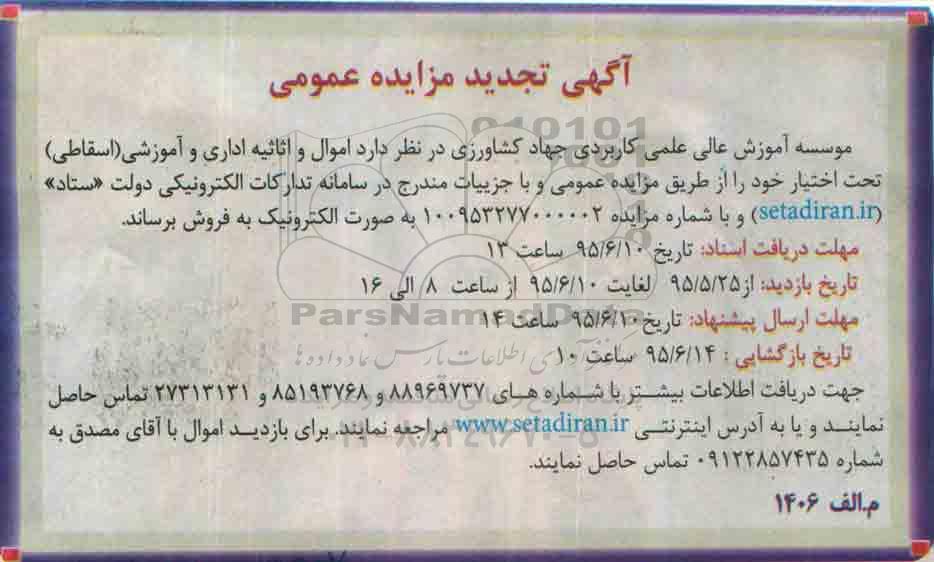 آگهی تجدید مزایده عمومی
موسسه آموزش عالی علمی کاربردی جهاد کشاورزی در نظر دارد اموال و اثاثیه اداری و آموزشی(اسقاطی)
تحت اختیار خود را از طریق مزایده عمومی و با جزییات مندرج در سامانه تدارکات الکترونیکی دولت «ستاد»
(setadiran.ir) و با شماره مزایده ۱۰۰۹۵۳۲۷۷۰۰۰۰۰۲ به صورت الکترونیک به فروش برساند.
مهلت دریافت اسناد: تاریخ ۹۵/۶/۱۰ ساعت ۱۳
تاریخ بازدید: از۹۵/۵/۲۵ لغایت ۹۵/۶/۱۰ از ساعت ۸ الی ۱۶
مهلت ارسال پیشنهاد: تاریخ۹۵/۶/۱۰ ساعت ۱۴
تاریخ بازگشایی : ۹۵/۶/۱۴ ساعت ۱۰
جهت دریافت اطلاعات بیشتر با شماره های ۸۸۹۶۹۷۳۷ و ۸۵۱۹۳۷۶۸ و ۲۷۳۱۳۱۳۱ تماس حاصل
نمایند و یا به آدرس اینترنتی www.setadiran.ir مراجعه نمایند. برای بازدید اموال با آقای مصدق به
شماره ۰۹۱۲۲۸۵۷۴۳۵ تماس حاصل نمایند.
م.الف ۱۴۰۶
ParsNamadData